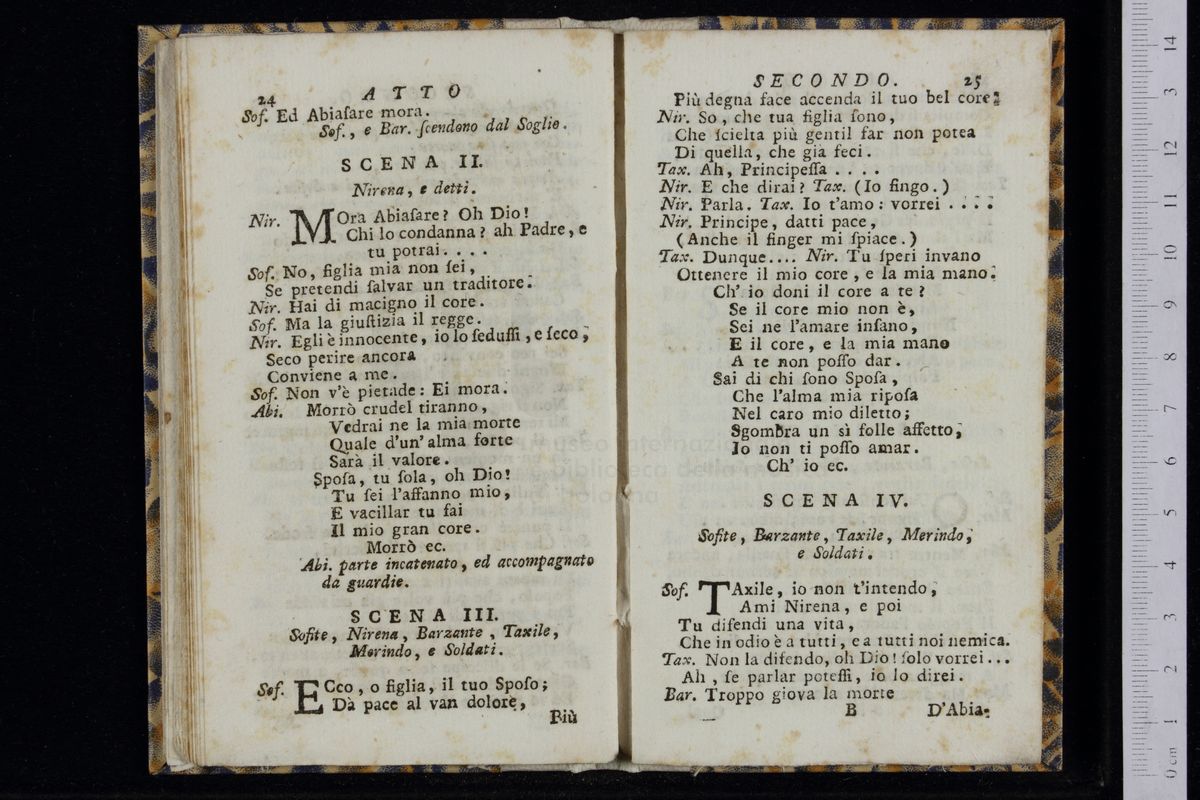 24 ATTO
Sof. Ed Abiaſare mora.
Sof., e Bar. ſcendono dal Soglio.
SCENA II.
Nirena, e detti.
Nir. MOra Abiaſare? Oh Dio!
Chi lo condanna? ah Padre, e
tu potrai. . . .
Sof. No, figlia mia non ſei,
Se pretendi ſalvar un traditore.
Nir. Hai di macigno il core.
Sof. Ma la giuſtizia il regge.
Nir. Egli è innocente, io lo ſeduſſi, e ſeco,
Seco perire ancora
Conviene a me.
Sof. Non v'è pietade: Ei mora.
Abi. Morrò crudel tiranno,
Vedrai ne la mia morte
Quale d'un' alma forte
Sarà il valore.
Spoſa, tu ſola, oh Dio!
Tu ſei l'affanno mio,
E vacillar tu fai
Il mio gran core.
Morrò ec.
Abi. parte incatenato, ed accompagnato
da guardie.
SCENA III.
Sofite, Nirena, Barzante, Taxile,
Merindo, e Soldati.
Sof. ECco, o figlia, il tuo Spoſo;
Dà pace al van dolore,
Più
SECONDO. 25
Più degna face accenda il tuo bel core.
Nir. So, che tua figlia ſono,
Che ſcielta più gentil far non potea
Di quella, che gia feci.
Tax. Ah, Principeſſa . . . .
Nir. E che dirai? Tax. (Io fingo.)
Nir. Parla. Tax. Io t'amo: vorrei . . . .
Nir. Principe, datti pace,
(Anche il finger mi ſpiace.)
Tax. Dunque.... Nir. Tu ſperi invano
Ottenere il mio core, e la mia mano.
Ch' io doni il core a te?
Se il core mio non è,
Sei ne l'amare inſano,
E il core, e la mia mano
A te non poſſo dar.
Sai di chi ſono Spoſa,
Che l'alma mia ripoſa
Nel caro mio diletto;
Sgombra un sì folle affetto,
Io non ti poſſo amar.
Ch' io ec.
SCENA IV.
Sofite, Barzante, Taxile, Merindo,
e Soldati.
Sof. TAxile, io non t'intendo,
Ami Nirena, e poi
Tu difendi una vita,
Che in odio è a tutti, e a tutti noi nemica.
Tax. Non la difendo, oh Dio! ſolo vorrei...
Ah, ſe parlar poteſſi, io lo direi.
Bar. Troppo giova la morte
B D'Abia-
museo internazionale
e biblioteca della musica
Bologna
0 cm 1 2 3 4 5 6 7 8 9 10 11 12 13 14